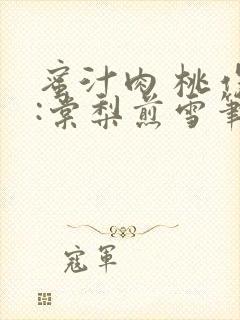 蜜汁肉桃
:棠梨煎雪筆
寇軍